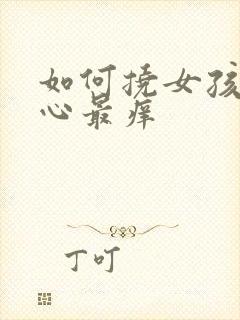 如何挠女孩
心最痒
丁叮